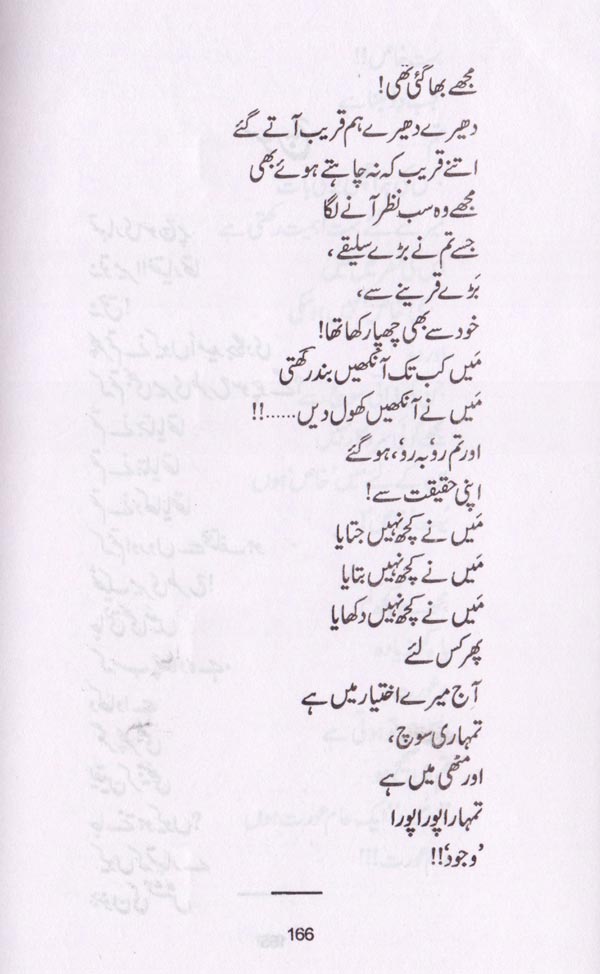 مجھے بھا گئی تھی!
دھیرے دھیرے ہم قریب آتے گئے
اتنے قریب کہ نہ چاہتے ہوئے بھی
مجھے وہ سب نظر آنے لگا
جسے تم نے بڑے سلیقے،
بَڑے قرینے سے،
خود سے بھی چھپا رکھا تھا!
مَیں کب تک آنکھیں بند رکھتی
مَیں نے آنکھیں کھول دیں......!!
اور تم روٗ بہ روٗ، ہو گئے
اپنی حقیقت سے!
مَیں نے کچھ نہیں جتایا
مَیں نے کچھ نہیں بتایا
مَیں نے کچھ نہیں دکھایا
پھر کس لئے
آج میرے اختیار میں ہے
تمہاری سوچ،
اور مٹھی میں ہے
تمہارا پورا پورا
’وجود‘!!
166